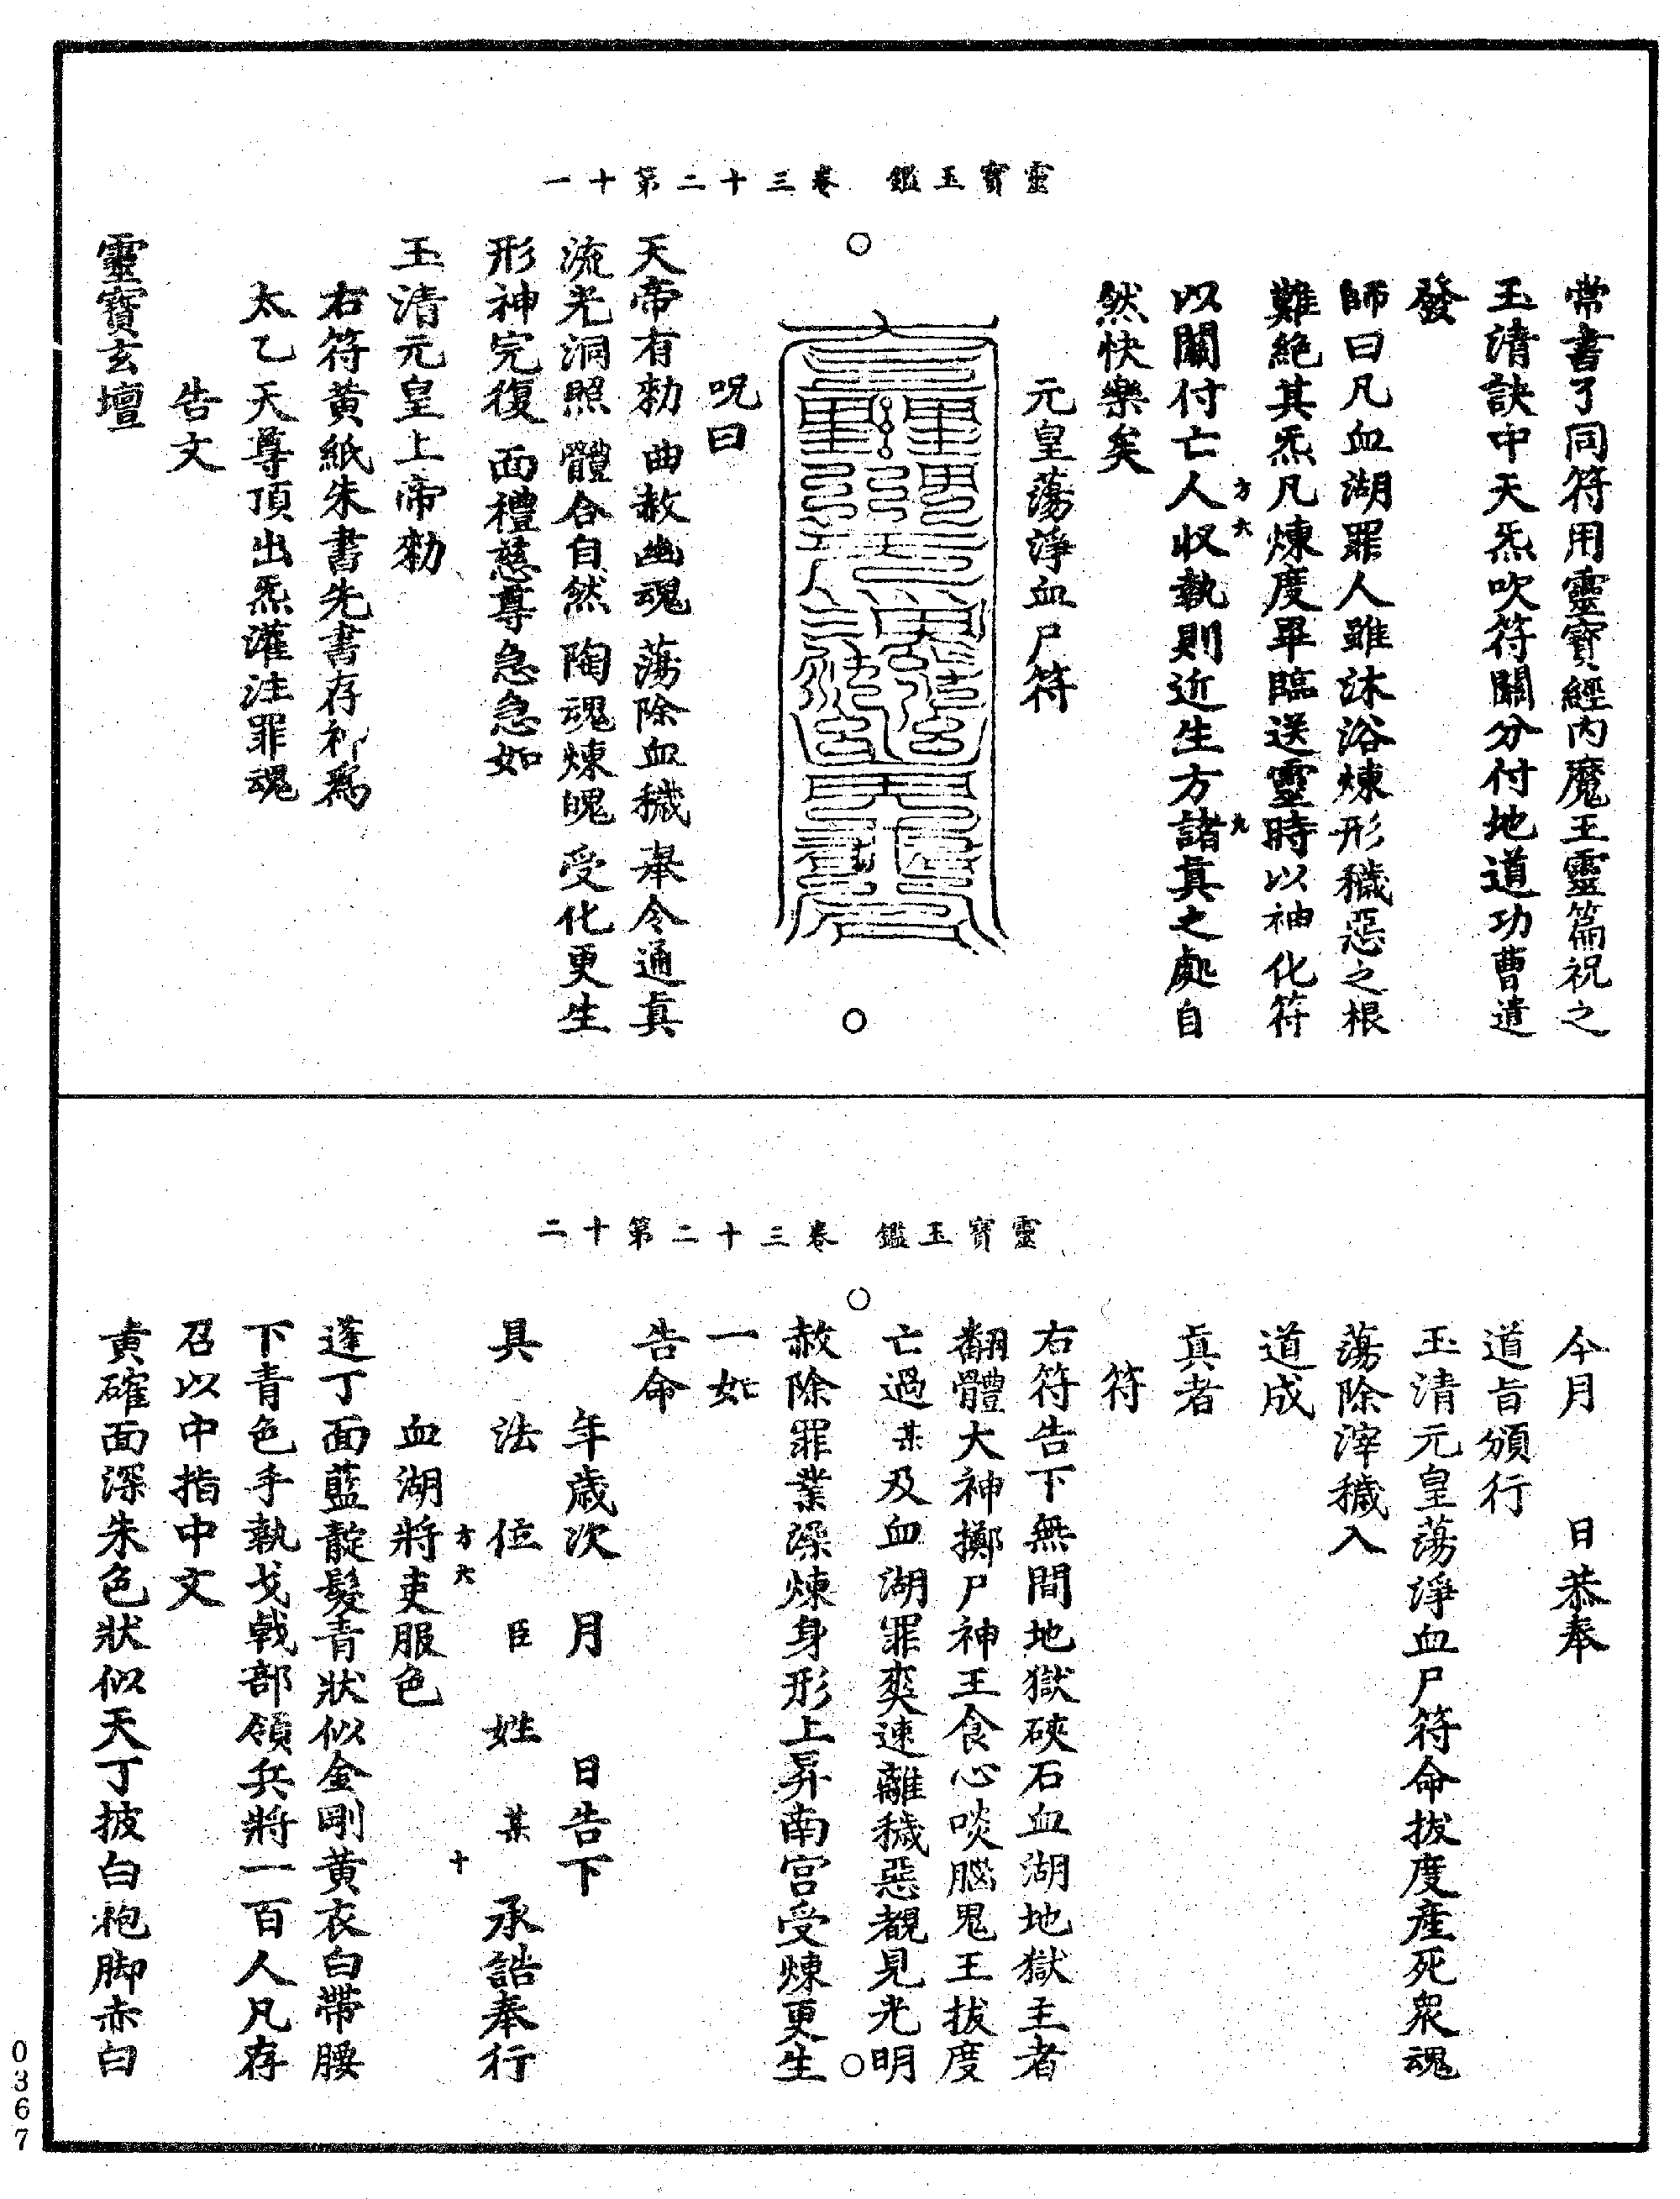 靈寶玉鑑 卷三十二第十一
常書了同符用靈寶經內魔王靈篇祝之
玉清訣中天炁吹符關分付地道功曹遣
發
師曰凡血湖罪人雖沐浴煉形穢惡之根
難絕其炁凡煉度畢臨送靈時以神化符
方六 九
以關付亡人收執則近生方諸真之處自
然快樂矣
元皇蕩淨血尸符
呪曰
天帝有勑 曲赦幽魂 蕩除血穢 舉令通真
流光洞照 體合自然 陶魂煉魄 受化更生
形神完復 面禮慈尊急急如
玉清元皇上帝勑
右符黃紙朱書先書存祁為
太乙天尊頂出炁灌注罪魂
告文
靈寶玄壇
靈寶玉鑑 卷三十二第十二
今月 日恭奉
道旨頒行
玉清元皇蕩淨血尸符命拔度產死衆魂
蕩除滓穢入
道成
真者
符
右符告下無間地獄硤石血湖地獄主者
翻體大神擲尸神王食心啖腦鬼王拔度
亡過某及血湖罪爽速離穢惡覩見光明
赦除罪業澡煉身形上昇南宮受煉更生
一如
告命
年歲次 月 日告下
具法位臣姓某承誥奉行
方六 十
血湖將吏服色
蓬丁面藍靛髮青狀似金剛黃衣白帶腰
下青色手執戈戟部領兵將一百人凡存
召以中指中文
黃確面深朱色狀似天丁披白袍脚赤白
0367